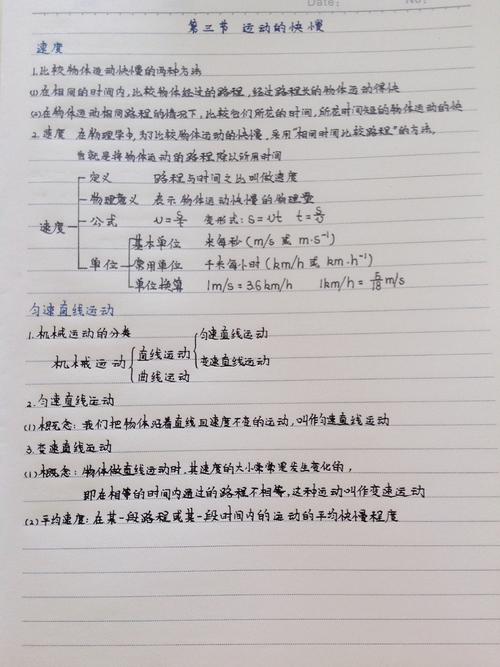 Date: No:
第三节 运动的快慢
速度
1.比较物体运动快慢的两种方法
(1)在相同的时间内,比较物体经过的路程,经过路程长的物体运动得快
(2)在物体运动相同路程的情况下,比较他们所花的时间,所花时间短的物体运动的快
2.速度 在物理学中,为了比较物体运动的快慢,采用"相同时间比较路程"的方法,
也就是将物体运动的路程除以所用时间
定义 路程与时间之比叫做速度
物理意义 表示物体运动快慢的物理量
速度 公式 v=s/t 变形式:s=vt t=s/v
基本单位 米每秒(m/s 或 m·s⁻¹)
单位 常用单位 千米每小时(km/h 或 km·h⁻¹)
单位换算 1m/s=3.6km/h 1km/h=5/18m/s
匀速直线运动
1.机械运动的分类
匀速直线运动
机械运动 直线运动 变速直线运动
曲线运动
2.匀速直线运动
(1)概念:我们把物体沿着直线且速度不变的运动,叫作匀速直线运动
3.变速直线运动
(1)概念:物体做直线运动时,其速度的大小常常是发生变化的,
即在相等的时间内通过的路程不相等,这种运动叫作变速运动
(2)平均速度:在某一段路程或某一段时间内的运动的平均快慢程度